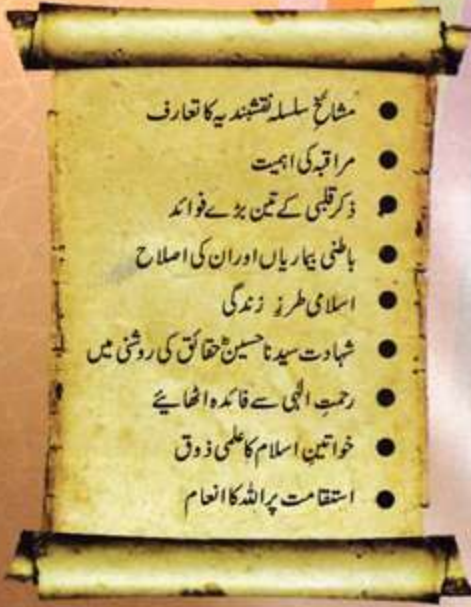 ● مشائخِ سلسلہ نقشبندیہ کا تعارف
● مراقبہ کی اہمیت
● ذکر قلبی کے تین بڑے فوائد
● باطنی بیماریاں اور ان کی اصلاح
● اسلامی طرزِ زندگی
● شہادت سیدنا حسینؓ حقائق کی روشنی میں
● رحمتِ الٰہی سے فائدہ اٹھائیے
● خواتینِ اسلام کا علمی ذوق
● استقامت پر اللہ کا انعام